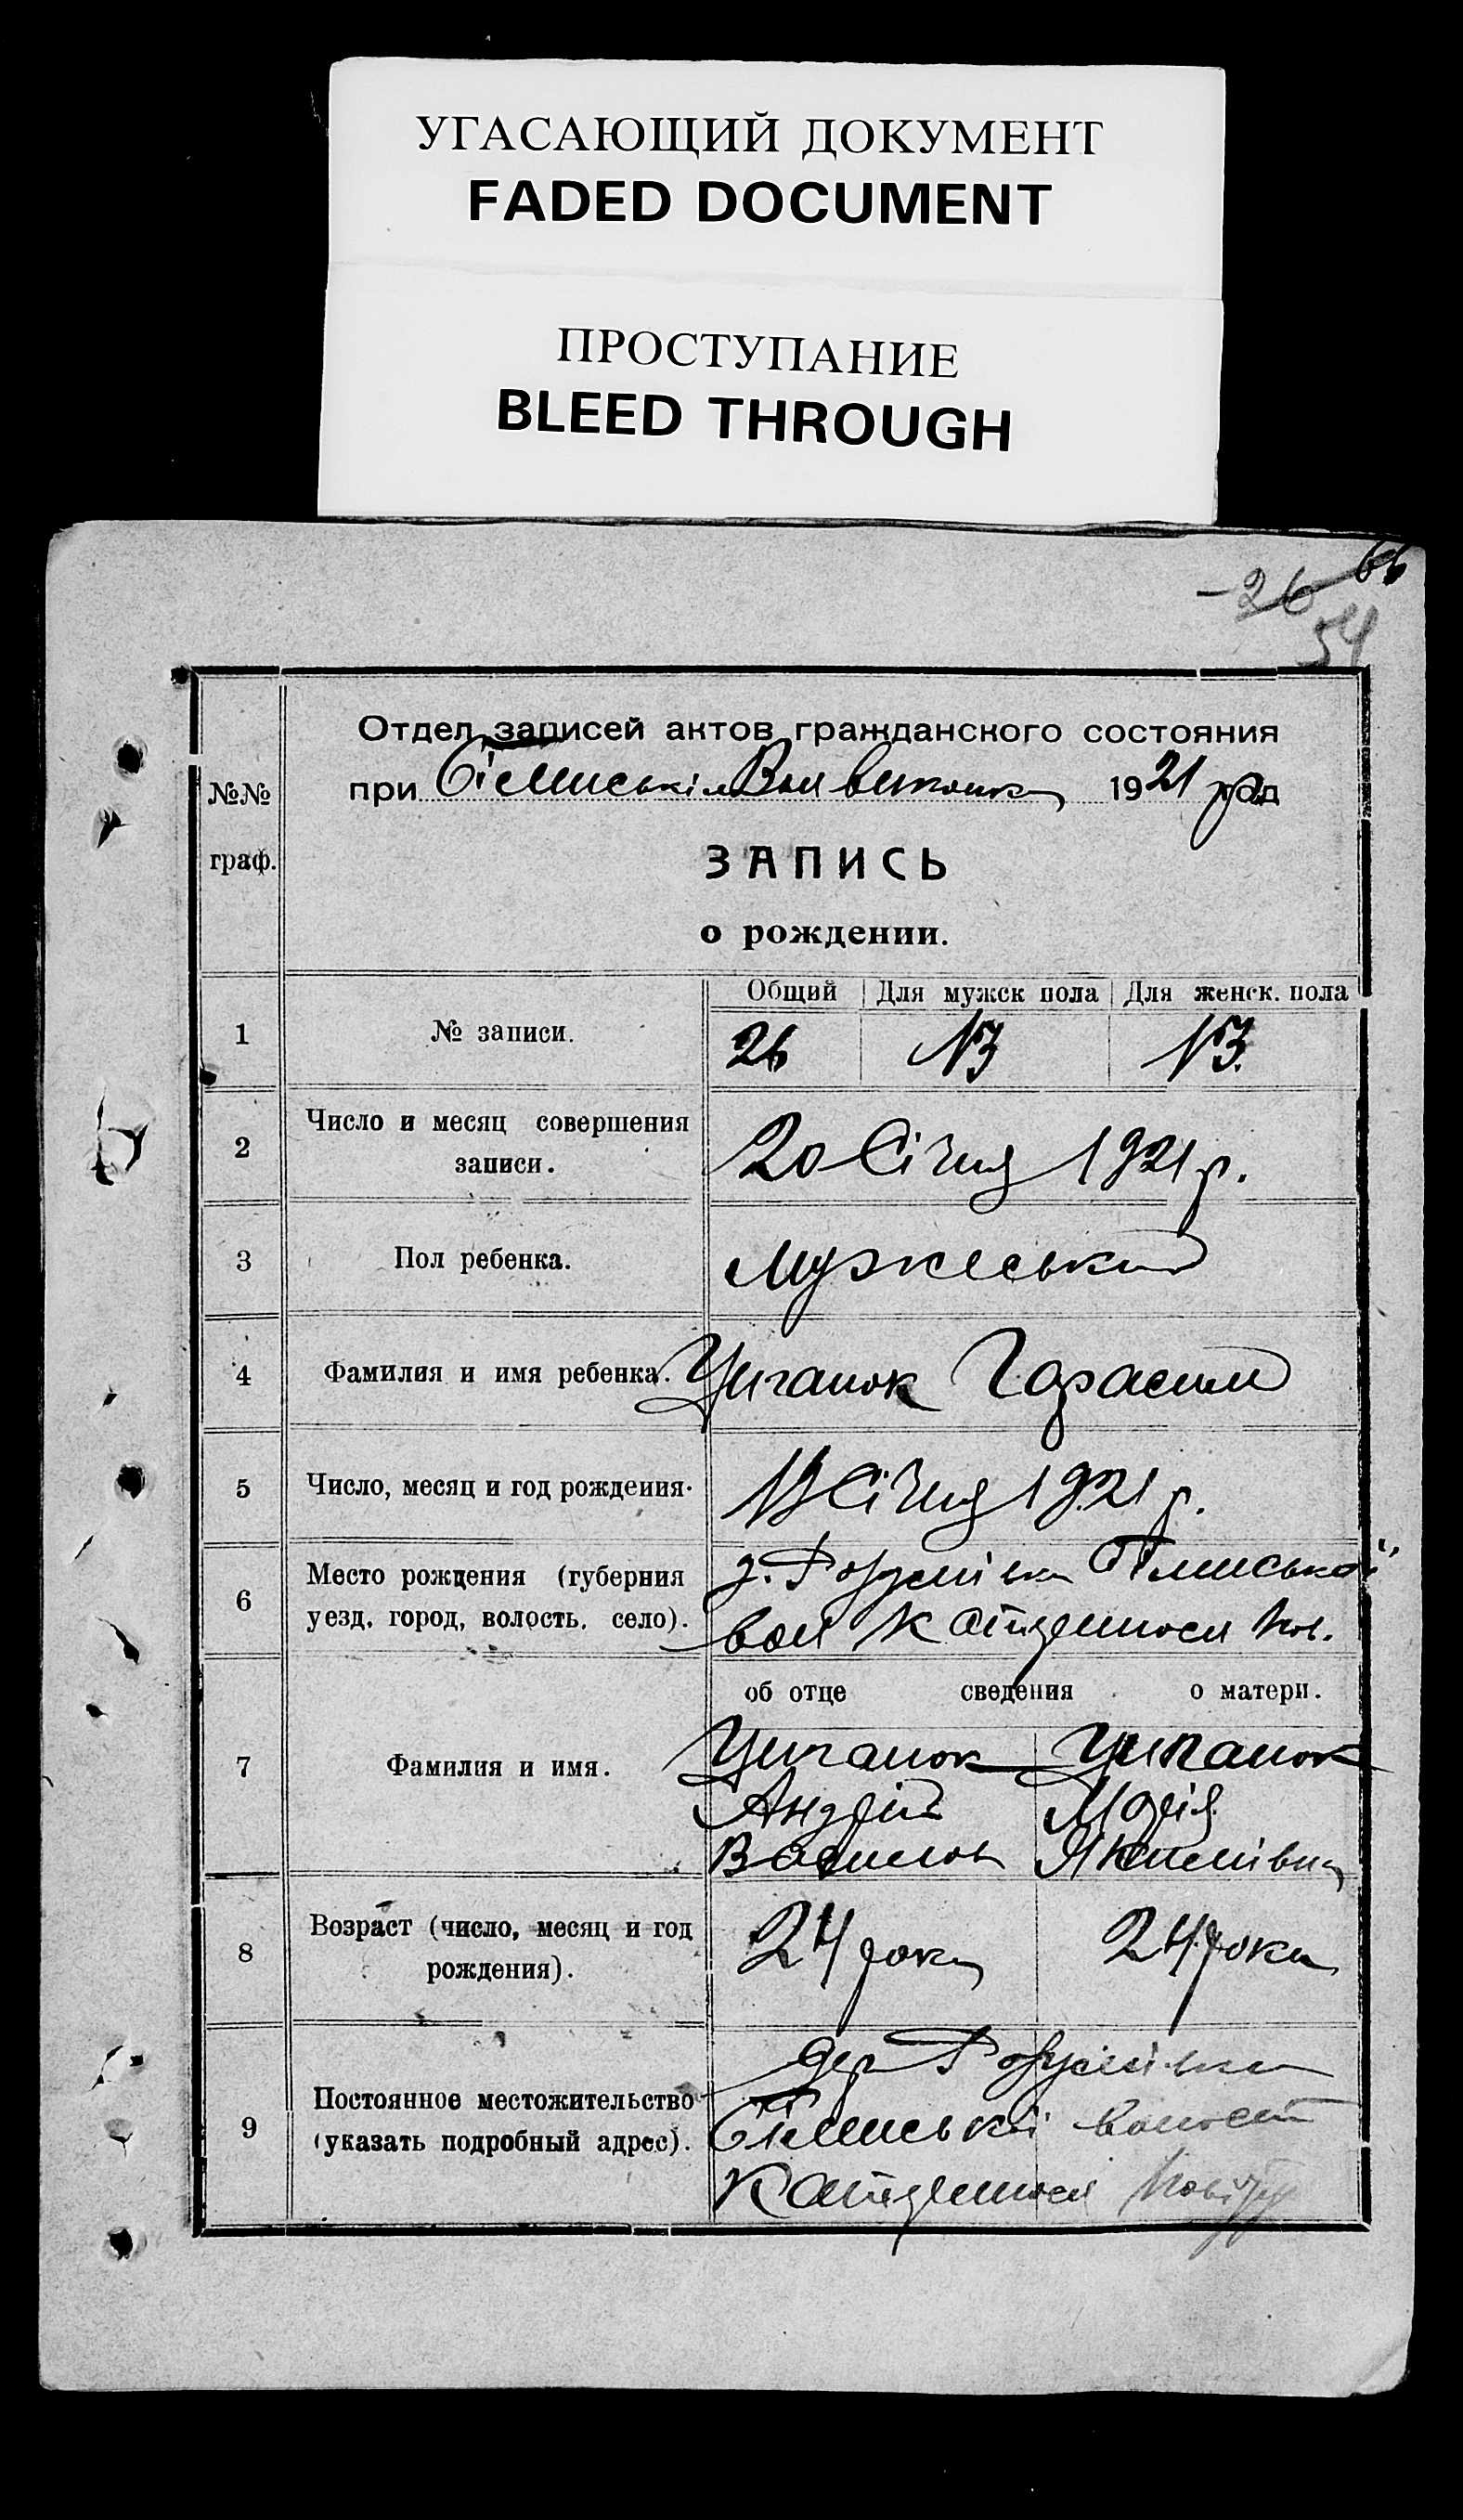 УГАСАЮЩИЙ ДОКУМЕНТ
FADED DOCUMENT
ПРОСТУПАНИЕ
BLEED THROUGH
66
26
54
Отдел записей актов гражданского состояния
№№ при 1921 год
граф.
ЗАПИСЬ
о рождении.
Общий Для мужск пола Для женск. пола
1 № записи. 26 13 13
2 Число и месяц совершения
записи. 20 Січня 1921 р.
3 Пол ребенка. мужеський
4 Фамилия и имя ребенка. Циганок Гарасим
5 Число, месяц и год рождения. Січня 1921 р.
6 Место рождения (губерния
уезд, город, волость, село).
вол пов.
об отце сведения о матери.
7 Фамилия и имя. Циганок Циганок
Андрій Марія
Васильов Якимівна
8 Возраст (число, месяц и год
рождения). 24 роки 24 роки
9 Постоянное местожительство
(указать подробный адрес).
дер
волости
повіту